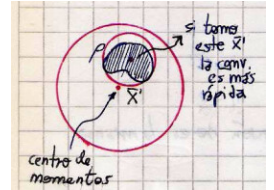 si tomo
este x̄'
la conv.
es más
rápida
ρ
x̄'
centro de
momentos